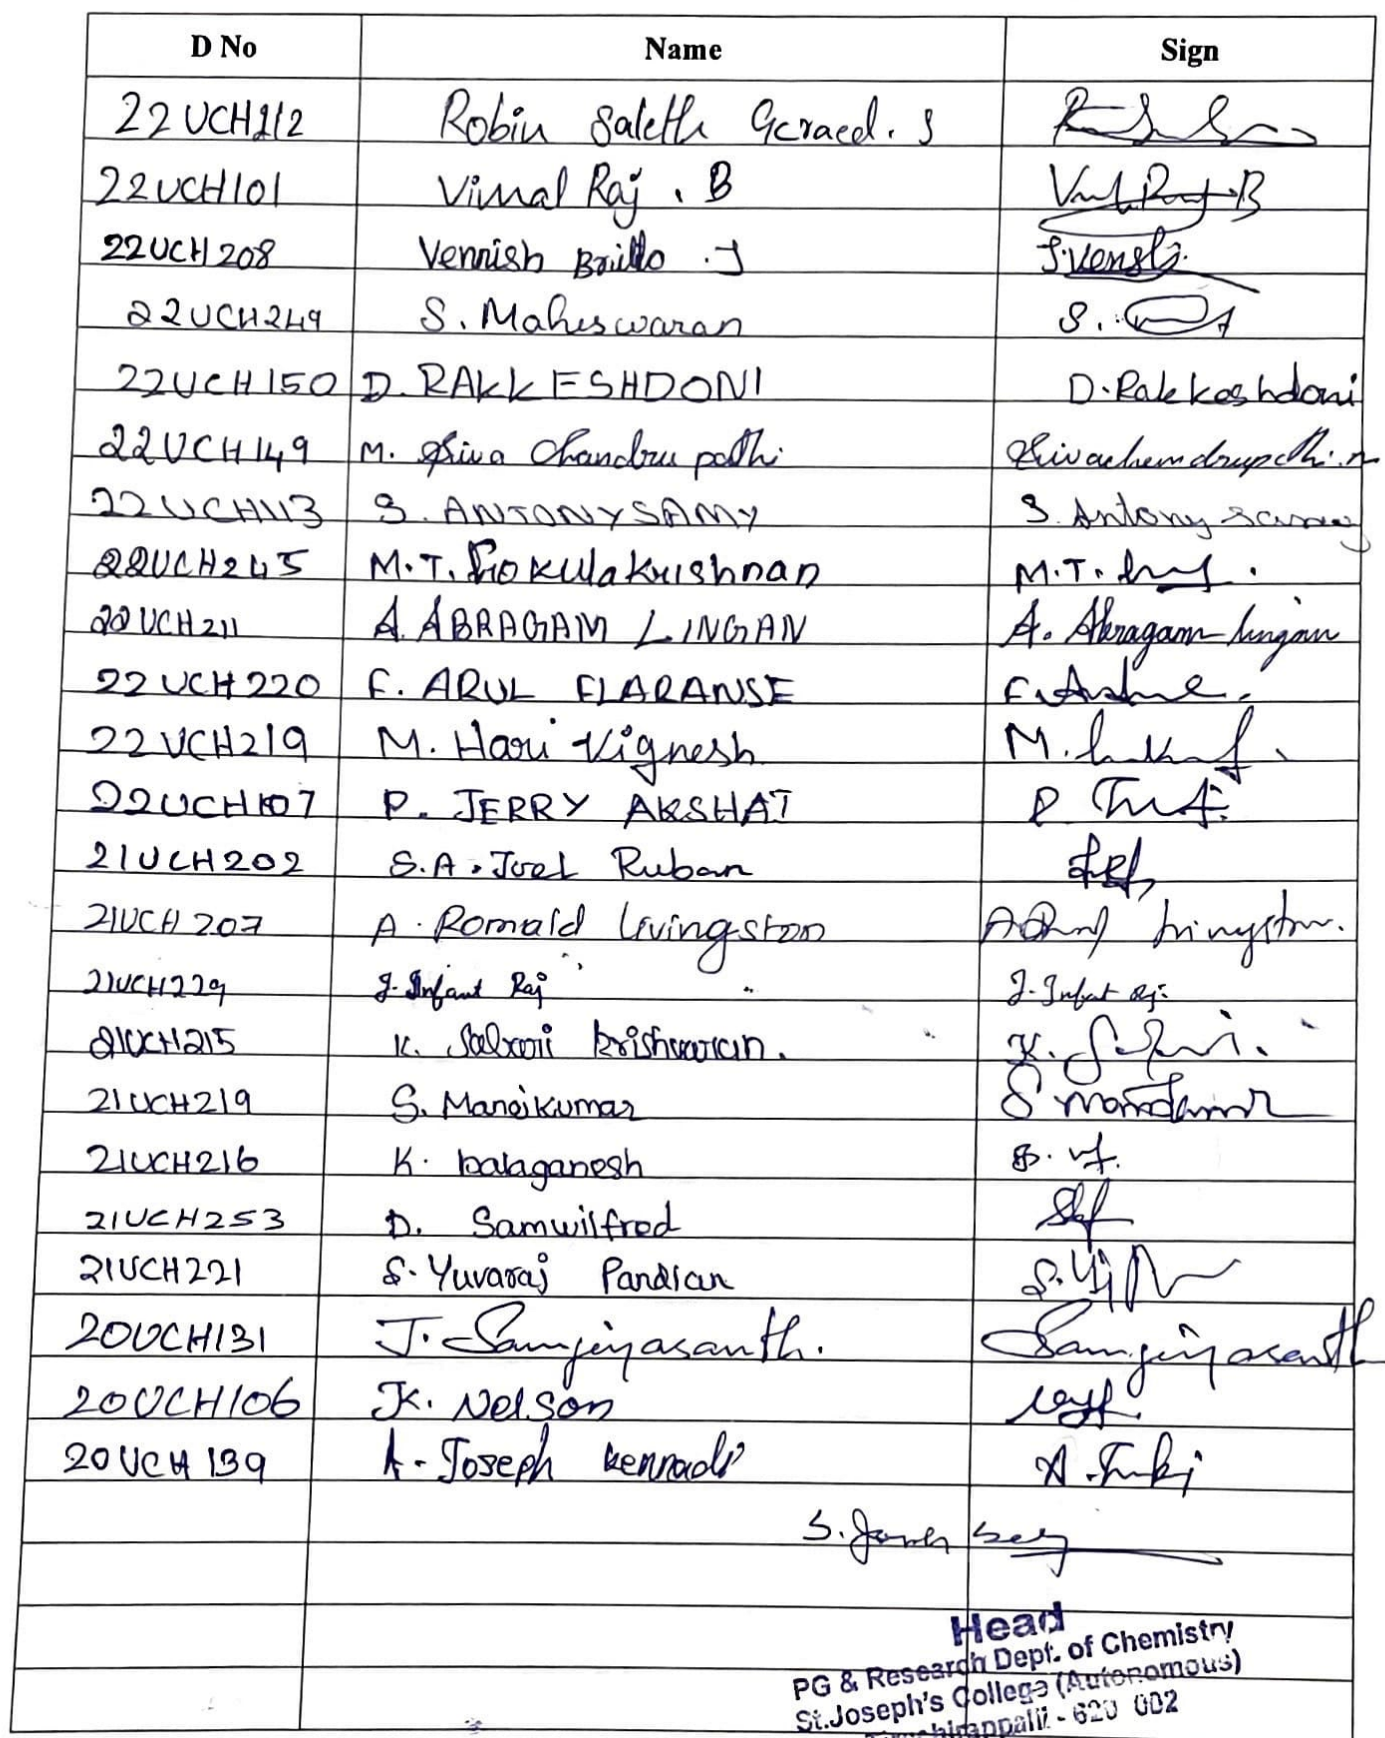 D No Name Sign
22UCH212 Robin Saleth Geraed. S
22UCH101 Vimal Raj . B Vimal Raj. B
22UCH208 Vennish Britto . J
22UCH249 S. Maheswaran S.
22UCH150 D. RAKKESHDONI D. Rakkeshdoni
22UCH149 M. Shiva Chandru pathi Shivachandrupathi. M
22UCH113 S. ANTONYSAMY S. Antony samy
22UCH245 M.T. Gokulakrishnan M.T.
22UCH211 A. ABRAGAM LINGAN A. Abragam lingan
22UCH220 F. ARUL FLARANSE F.
22UCH219 M. Hari Vignesh M.
22UCH107 P. JERRY AKSHAT P
21UCH202 S.A. Joel Ruban
21UCH207 A. Romald Livingston A Livingston.
21UCH229 J. Infant Raj J. Infant Raj
21UCH215 K. K.
21UCH219 S. Manoikumar S
21UCH216 K. balaganesh
21UCH253 D. Samwilfred
21UCH221 S. Yuvaraj Pandian S.
20UCH131 J. Samjeiyasanth. Samjeiyasanth
20UCH106 K. Nelson
20UCH139 A. Joseph kennadi A.
S.
Head
PG & Research Dept. of Chemistry
St.Joseph's College (Autonomous)
620 002